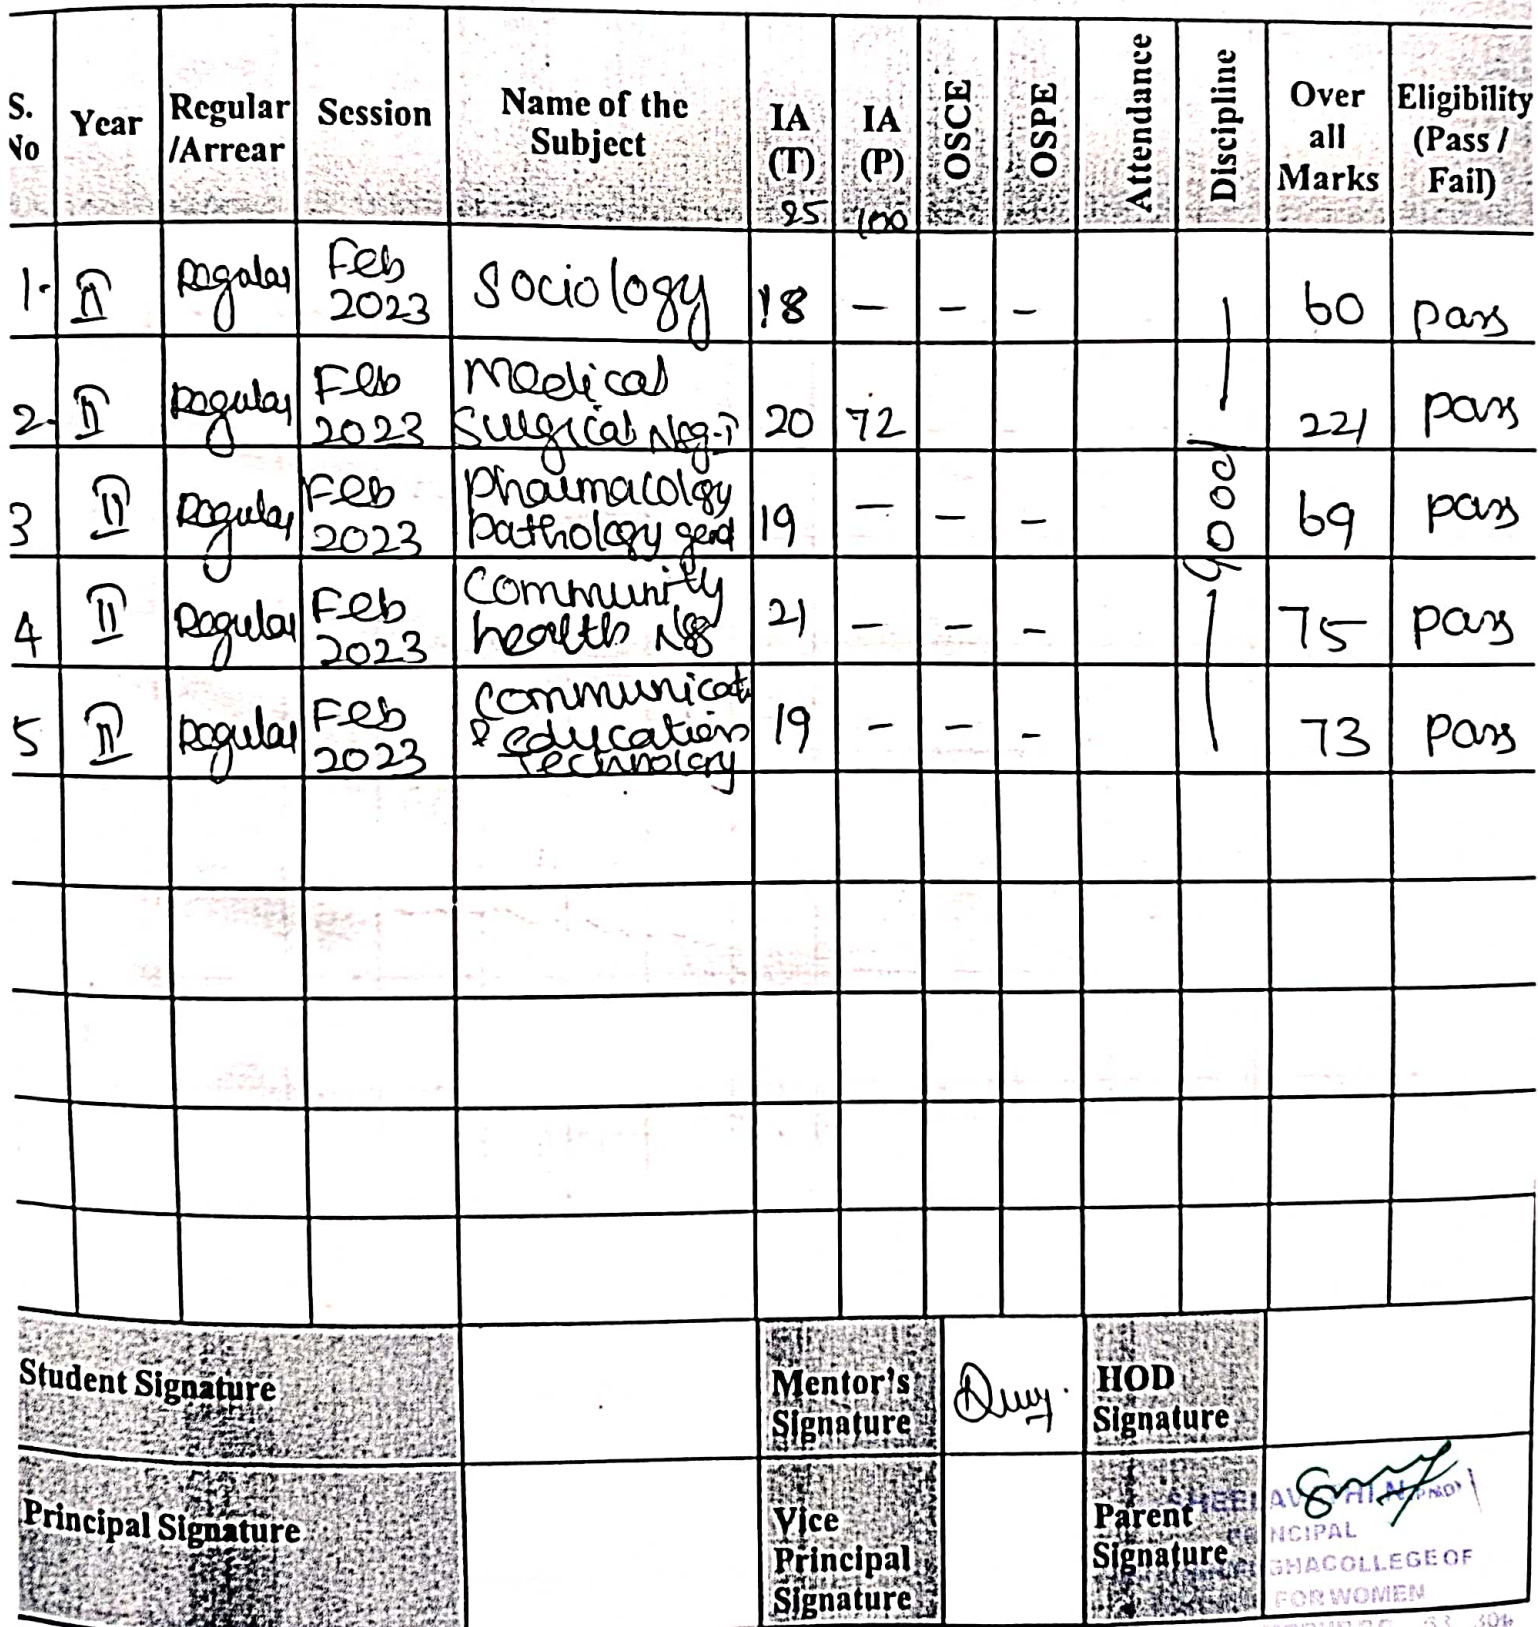 S. No Year Regular /Arrear Session Name of the Subject IA (T) 25 IA (P) 100 OSCE OSPE Attendance Discipline Over all Marks Eligibility (Pass / Fail)
1. II Regular Feb 2023 Sociology 18 – – – 60 pass
2. II Regular Feb 2023 Medical Surgical Nsg-I 20 72 221 pass
3 II Regular Feb 2023 Pharmacology pathology 19 – – – 69 pass
4 II Regular Feb 2023 Community health 21 – – – 75 pass
5 II Regular Feb 2023 Communicat & education Technology 19 – – – 73 pass
Good
Student Signature Mentor's Signature HOD Signature
Principal Signature Vice Principal Signature Parent Signature
NCIPAL
COLLEGE OF
FOR WOMEN